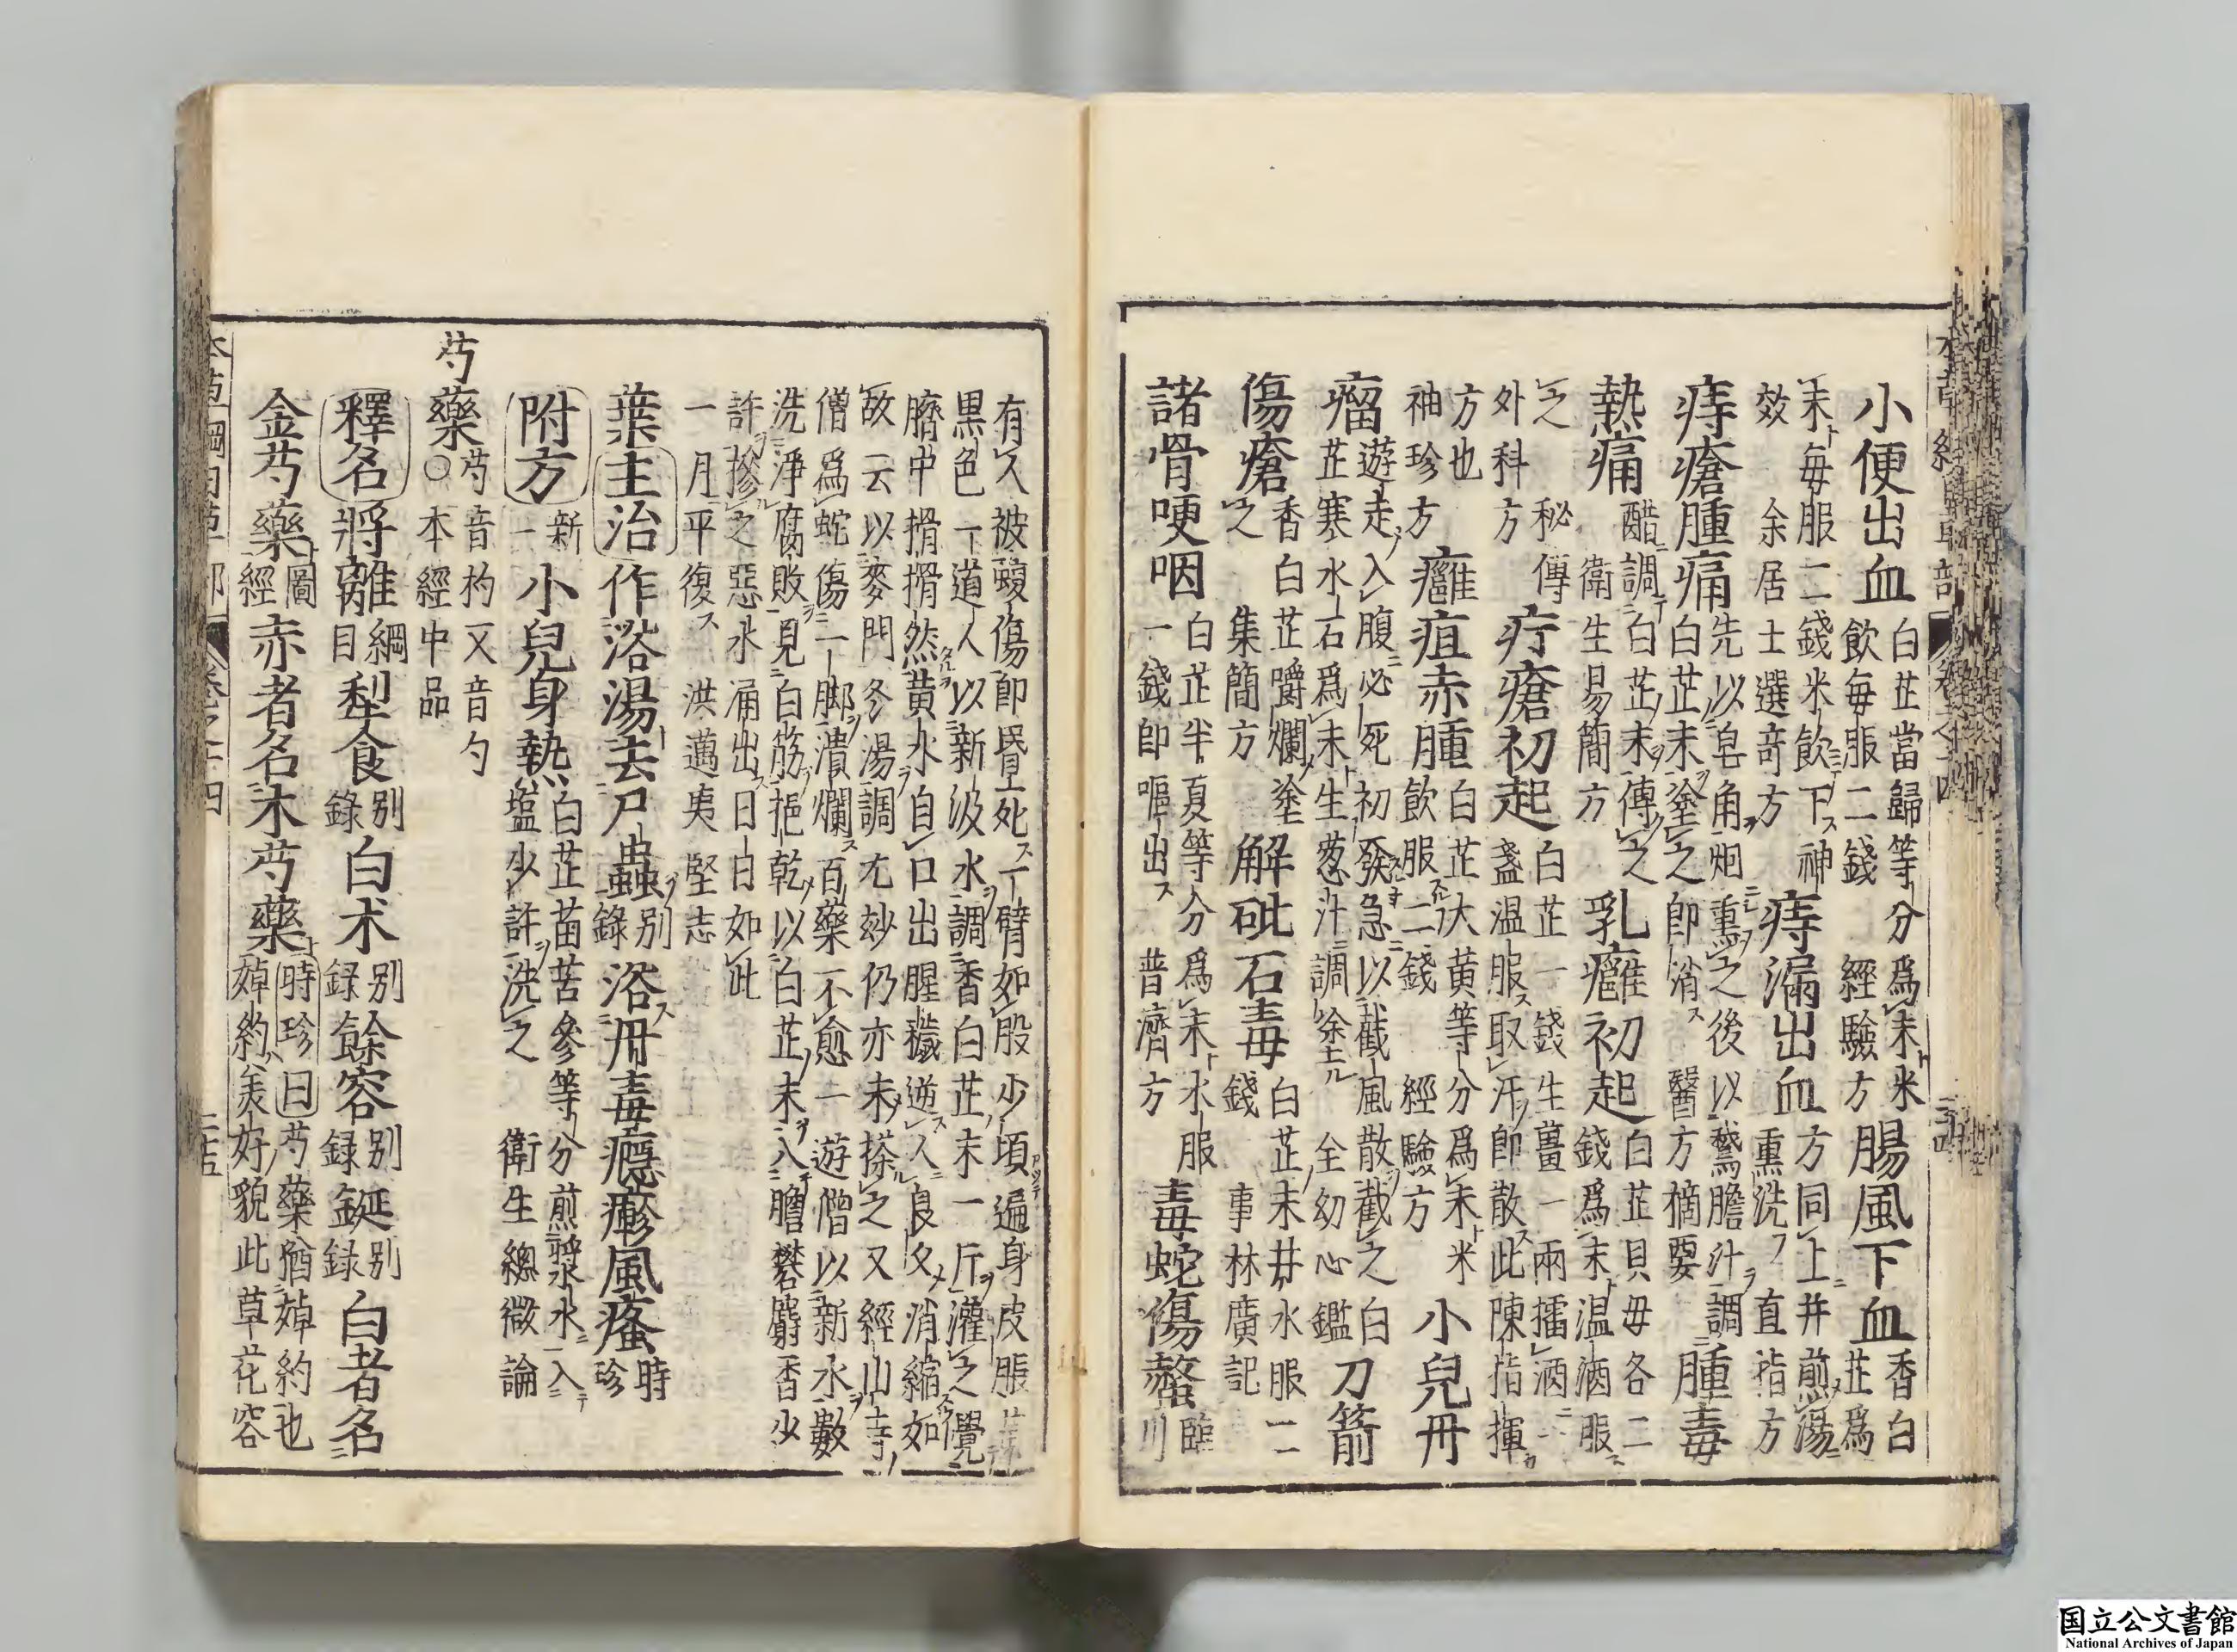 小便出血白芷當歸等分爲末米飲每服二錢 經驗方 腸風下血香白芷爲
末每服二錢米飲下神效 余居士選竒方 痔漏出血方同上井煎湯熏洗 直指方
痔瘡腫痛先以皂角烟熏之後以鵞膽汁調白芷末塗之即消 醫方摘要 腫毒
熱痛醋調白芷末傅之 衛生易簡方 乳癰初起白芷貝母各二錢爲末温酒服
之 秘傳外科方 疔瘡初起白芷一錢生薑一兩擂酒一盞温服取汗即散此陳指揮
方也 袖珍方 癰疽赤腫白芷大黄等分爲末米飲服二錢 經驗方 小兒丹
瘤遊走入腹必死初發急以截風散截之白芷寒水石爲末生葱汁調塗 全幼心鑑 刀箭
傷瘡香白芷嚼爛塗之 集簡方 解砒石毒白芷末井水服二錢 事林廣記
諸骨哽咽白芷半夏等分爲末水服一錢即嘔出 普濟方 毒蛇傷螫臨川
有人被蝮傷即昬死一臂如股少頃遍身皮脹
黒色一道人以新汲水調香白芷末一斤灌之覺
臍中搰搰然黄水自口出腥穢逆人良久消縮如
故云以麥門冬湯調尤玅仍亦未搽之又經山寺
僧爲蛇傷一脚潰爛百藥不愈一遊僧以新水數
洗淨腐敗見白筋挹乾以白芷末入膽礬麝香少
許摻之惡水涌出日日如此
一月平復 洪邁夷堅志
葉主治作浴湯去尸蟲別錄 浴丹毒癮瘮風瘙時珍
附方新一 小兒身熱白芷苗苦參等分煎漿水入塩少許洗之 衛生總微論
芍藥芍音杓又音勺○本經中品
釋名將離綱目 犁食別錄 白术別録 餘容別録 鋋別録 白者名
金芍藥圖經 赤者名木芍藥時珍曰芍藥猶婥約也婥約美好貌此草花容
国立公文書館
National Archives of Japan